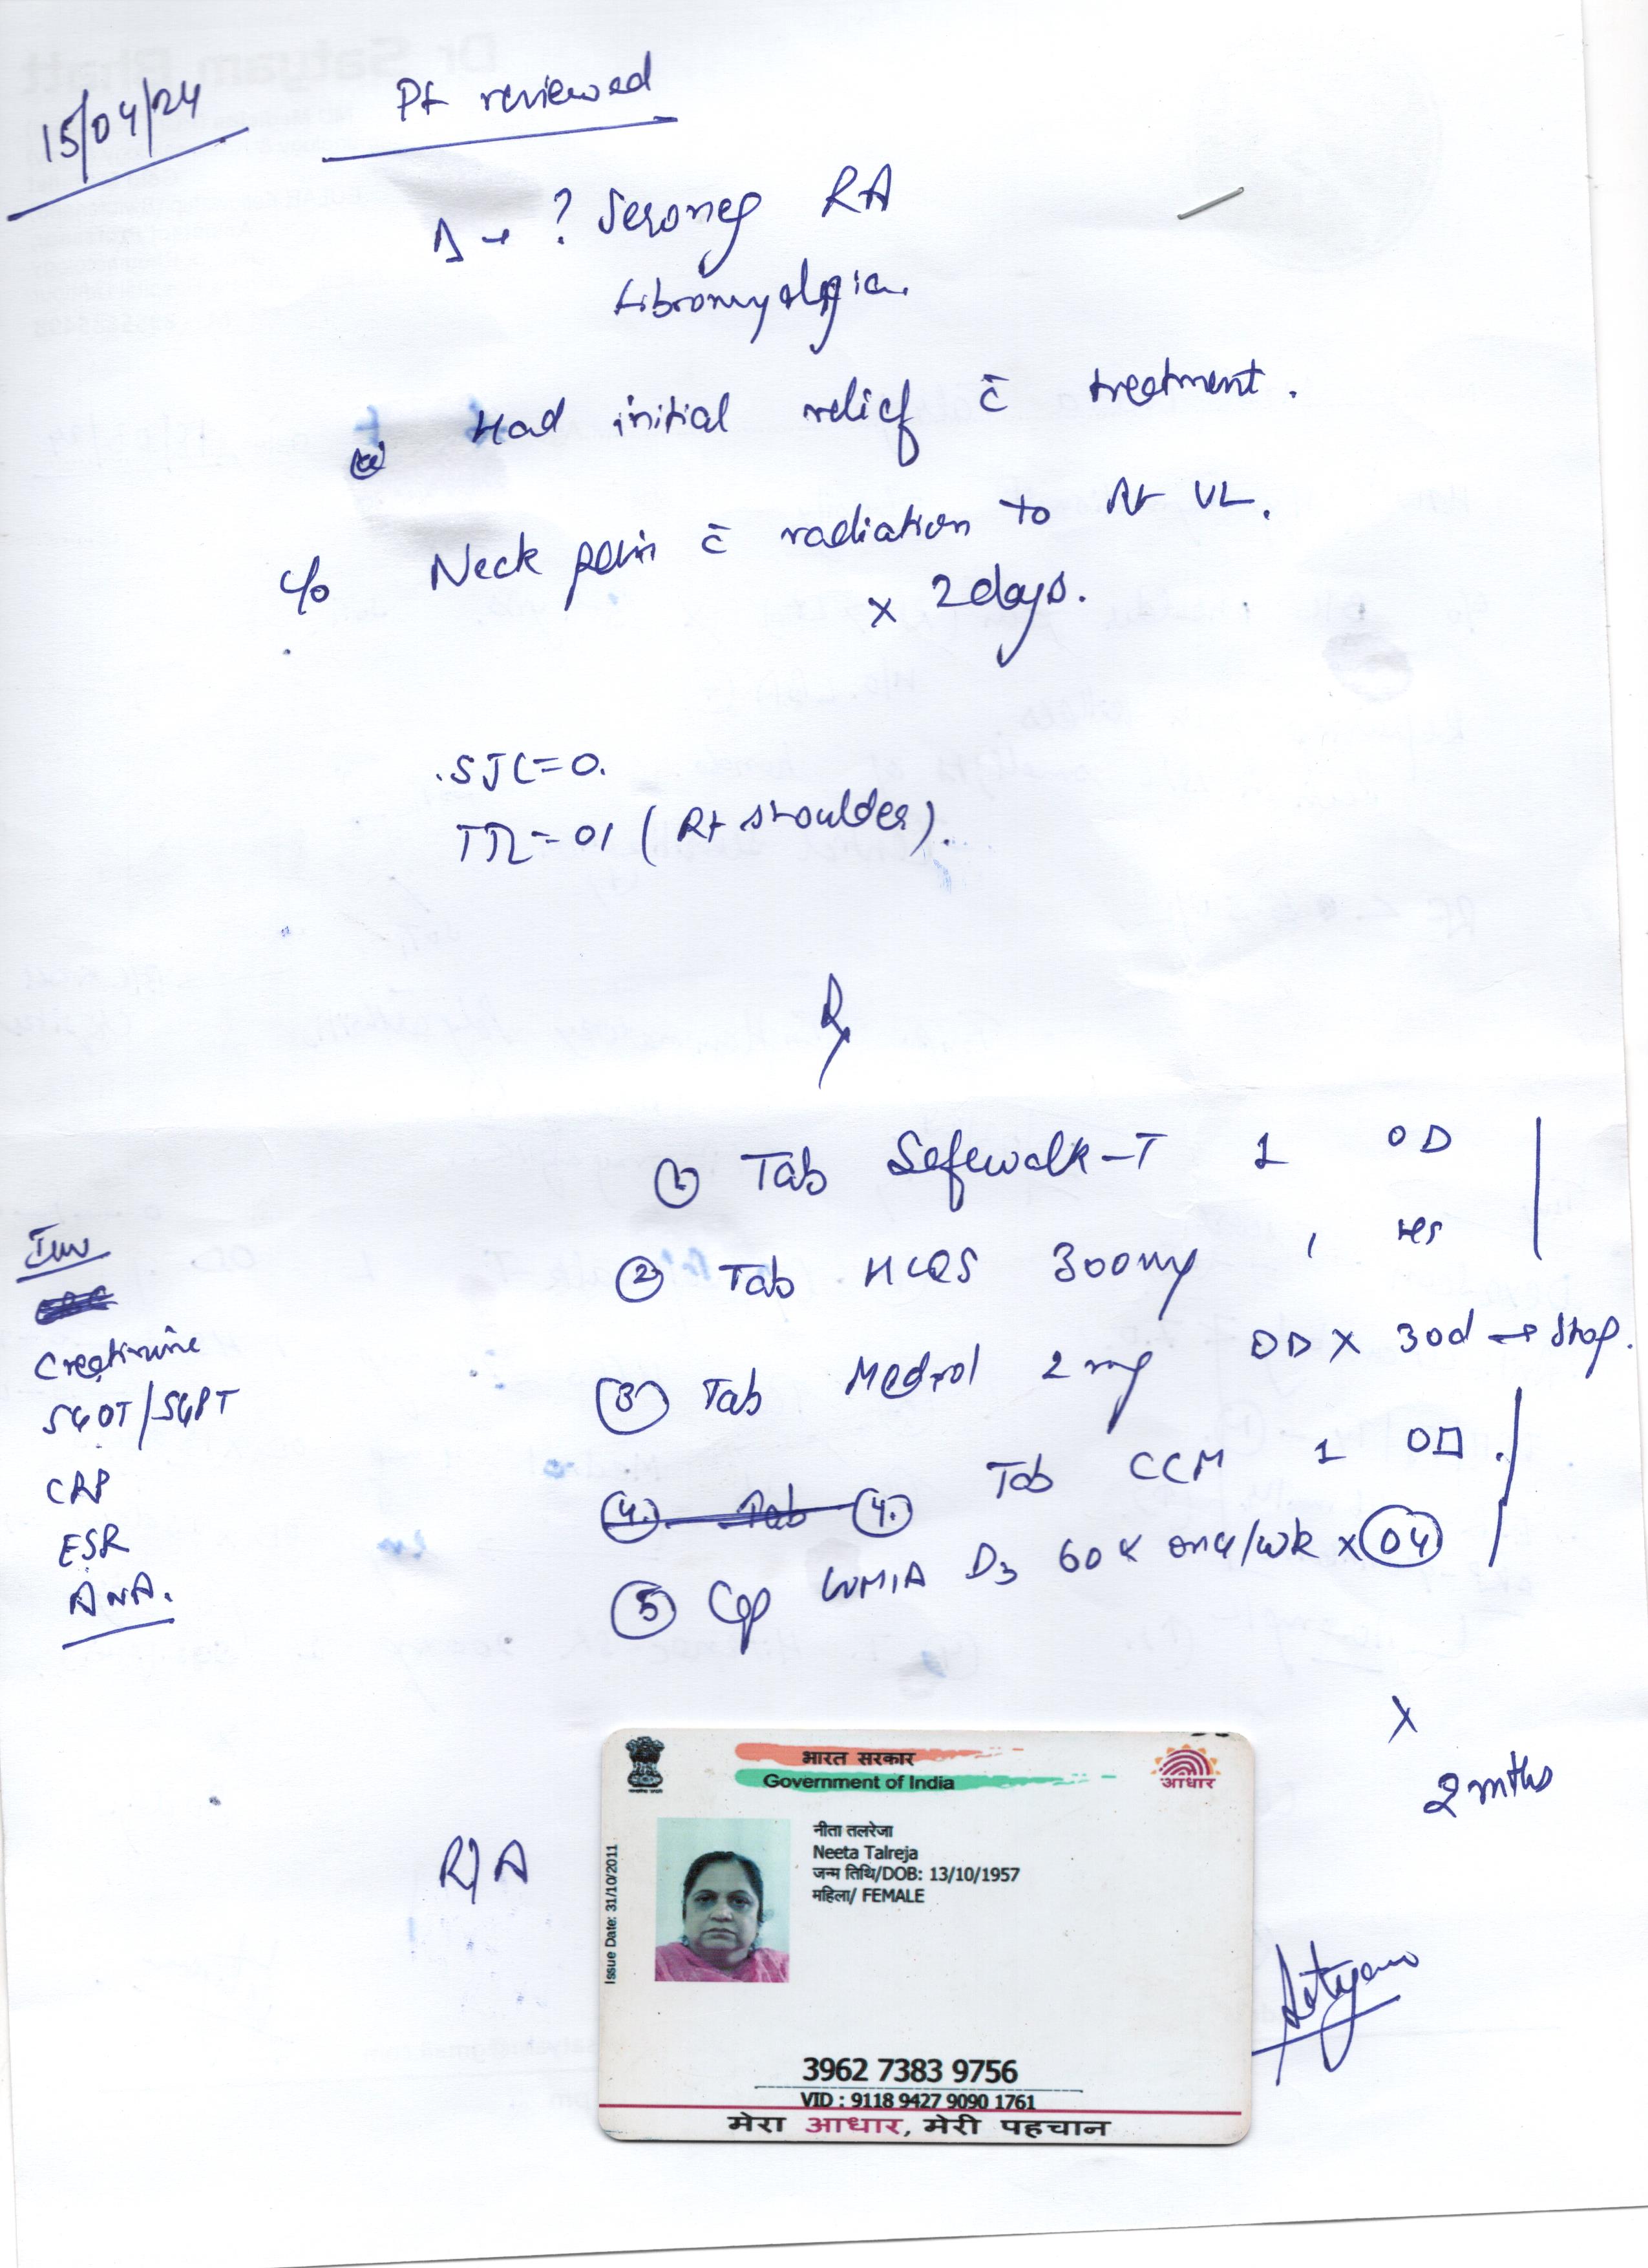 15/04/24
Pt reviewed
Δ → ? Seroneg RA
fibromyalgia.
Had initial relief c̄ treatment.
c/o Neck pain c̄ radiation to Rt UL.
x 2 days.
SJC=0.
TJC=01 (Rt shoulder).
Rx
① Tab Safewalk-T 1 OD
② Tab HCQS 300mg 1 HS
③ Tab Medrol 2mg OD x 30d → stop.
④. Tab ④. Tab CCM 1 OD.
⑤ Cap LUMIA D3 60K once/wk x 04
x
2 mths
Inv
CBC
Creatinine
SGOT/SGPT
CRP
ESR
ANA.
R/A
भारत सरकार
Government of India
आधार
Issue Date: 31/10/2011
नीता तलरेजा
Neeta Talreja
जन्म तिथि/DOB: 13/10/1957
महिला/ FEMALE
3962 7383 9756
VID : 9118 9427 9090 1761
मेरा आधार, मेरी पहचान
Satyam